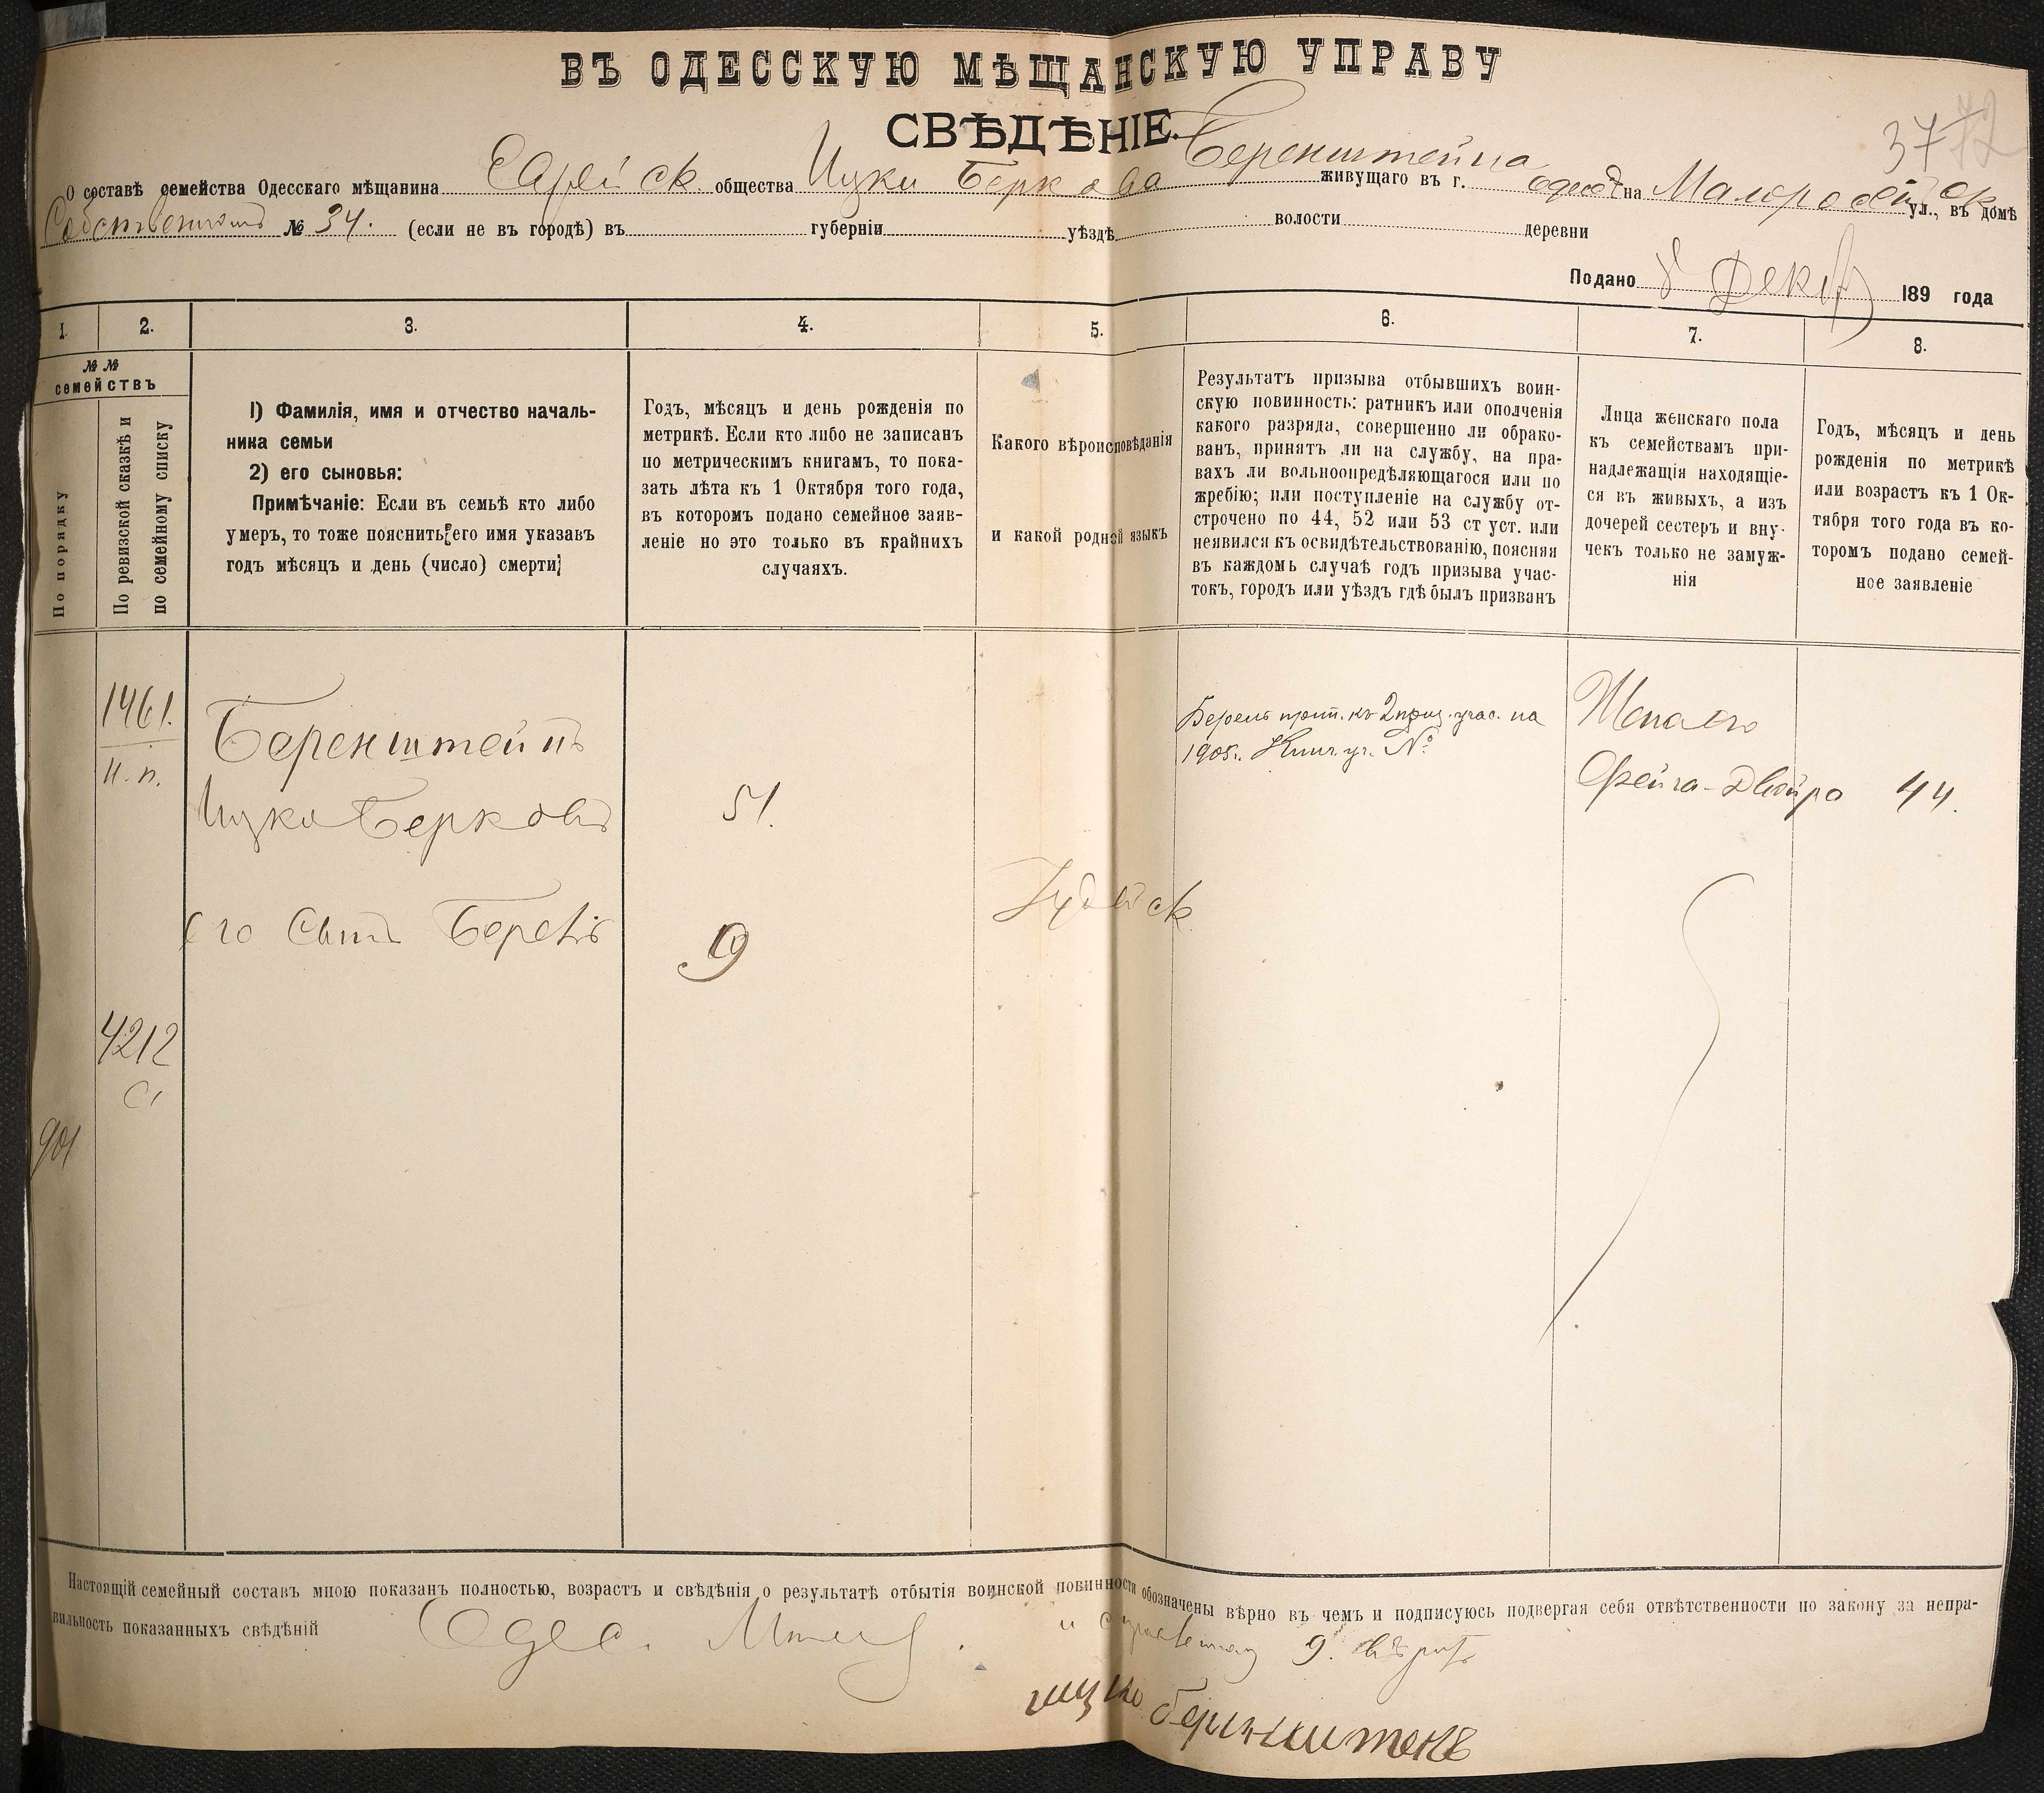 ВЪ ОДЕССКУЮ МѢЩАНСКУЮ УПРАВУ
СВѢДѢНІЕ.
3772
О составѣ семейства Одесскаго мѣщанина Еврейск. общества Ицки Беркова Беренштейна живущаго въ г. Одессѣ на Малоросійск ул., въ домѣ
Собственномъ № 34. (если не въ городѣ) въ губерніи уѣздѣ волости деревни
Подано 8 Декаб 189 года
1. 2. 3. 4. 5. 6. 7. 8.
№ №
семействъ
По порядку
По ревизской сказкѣ и
по семейному списку
1) Фамилія, имя и отчество началь-
ника семьи
2) его сыновья:
Примѣчаніе: Если въ семьѣ кто либо
умеръ, то тоже пояснить его имя указавъ
годъ мѣсяцъ и день (число) смерти;
Годъ, мѣсяцъ и день рожденія по
метрикѣ. Если кто либо не записанъ
по метрическимъ книгамъ, то пока-
зать лѣта къ 1 Октября того года,
въ которомъ подано семейное заяв-
леніе но это только въ крайнихъ
случаяхъ.
Какого вѣроисповѣданія
и какой родной языкъ
Результатъ призыва отбывшихъ воин-
скую повинность: ратникъ или ополченія
какого разряда, совершенно ли обрако-
ванъ, принятъ ли на службу, на пра-
вахъ ли вольноопредѣляющагося или по
жребію; или поступленіе на службу от-
строчено по 44, 52 или 53 ст уст. или
неявился къ освидѣтельствованію, поясняя
въ каждомъ случаѣ годъ призыва учас-
токъ, городъ или уѣздъ гдѣ былъ призванъ
Лица женскаго пола
къ семействамъ при-
надлежащія находящіе-
ся въ живыхъ, а изъ
дочерей сестеръ и вну-
чекъ только не замуж-
нія
Годъ, мѣсяцъ и день
рожденія по метрикѣ
или возрастъ къ 1 Ок-
тября того года въ ко-
торомъ подано семей-
ное заявленіе
1461.
н. п.
Беренштейнъ
Ицко Берковъ
51.
Берель прип. къ 2 приз. учас. на
1905 г. №
Жена его
Фейга-Двойра 44.
его Сынъ Берель
9
Іудейск.
4212
901
Настоящій семейный составъ мною показанъ полностью, возрастъ и свѣдѣнія о результатѣ отбытія воинской повинности обозначены вѣрно въ чемъ и подписуюсь подвергая себя отвѣтственности по закону за непра-
вильность показанныхъ свѣдѣній Одес.
ицко беринштенъ